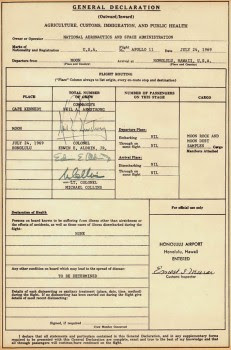 GENERAL DECLARATION
(Outward/Inward)
AGRICULTURE, CUSTOMS, IMMIGRATION, AND PUBLIC HEALTH
Owner or Operator NATIONAL AERONAUTICS AND SPACE ADMINISTRATION
Marks of Nationality and Registration U.S.A. Flight No. APOLLO 11 Date JULY 24, 1969
Departure from MOON Arrival at HONOLULU, HAWAII, U.S.A.
(Place and Country) (Place and Country)
FLIGHT ROUTING
("Place" Column always to list origin, every en-route stop and destination)
PLACE
TOTAL NUMBER OF CREW
NUMBER OF PASSENGERS ON THIS STAGE
CARGO
CAPE KENNEDY
COMMANDER
NEIL A. ARMSTRONG
MOON
JULY 24, 1969
HONOLULU
COLONEL
EDWIN E. ALDRIN, JR.
LT. COLONEL
MICHAEL COLLINS
Departure Place:
Embarking NIL
Through on same flight NIL
Arrival Place:
Disembarking NIL
Through on same flight NIL
MOON ROCK AND
MOON DUST
SAMPLES
Cargo
Manifests Attached
Declaration of Health
Persons on board known to be suffering from illness other than airsickness or the effects of accidents, as well as those cases of illness disembarked during the flight:
NONE
For official use only
HONOLULU AIRPORT
Honolulu, Hawaii
ENTERED
Customs Inspector
Any other condition on board which may lead to the spread of disease:
TO BE DETERMINED
Details of each disinsecting or sanitary treatment (place, date, time, method) during the flight. If no disinsecting has been carried out during the flight give details of most recent disinsecting:
Signed, if required
Crew Member Concerned
I declare that all statements and particulars contained in this General Declaration, and in any supplementary forms required to be presented with this General Declaration are complete, exact and true to the best of my knowledge and that all through passengers will continue/have continued on the flight.